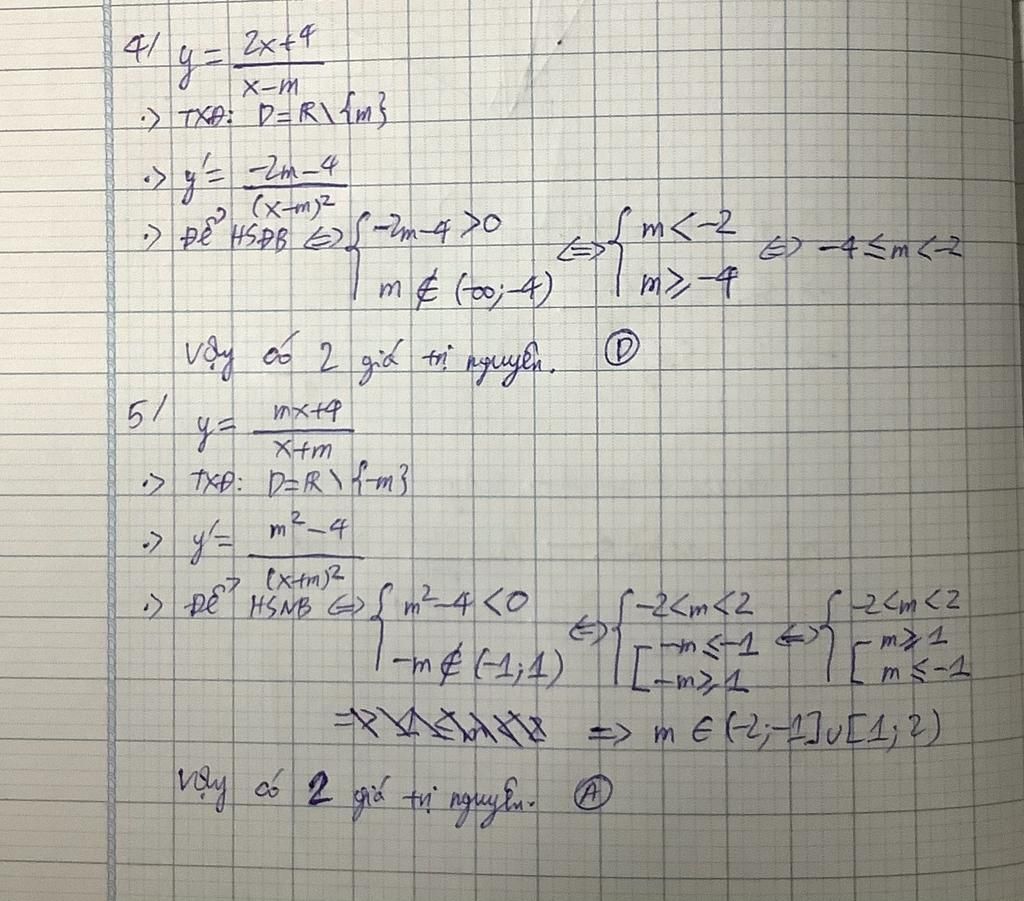 4/ y = \frac{2x+4}{x-m}
.> TXĐ: D=ℝ\{m}
.> y' = \frac{-2m-4}{(x-m)^2}
.> Để HSĐB ⇔ { -2m-4 > 0 ; m ∉ (-∞;-4) ⇔ { m < -2 ; m ≥ -4 ⇔ -4 ≤ m < -2
Vậy có 2 giá trị nguyên. Ⓓ
5/ y = \frac{mx+4}{x+m}
.> TXĐ: D=ℝ\{-m}
.> y' = \frac{m^2-4}{(x+m)^2}
.> Để HSNB ⇔ { m^2-4 < 0 ; -m ∉ (-1;1) ⇔ { -2<m<2 ; [ -m ≤ -1 ; -m ≥ 1 ⇔ { -2<m<2 ; [ m ≥ 1 ; m ≤ -1
=> m ∈ (-2;-1]∪[1;2)
Vậy có 2 giá trị nguyên. Ⓐ